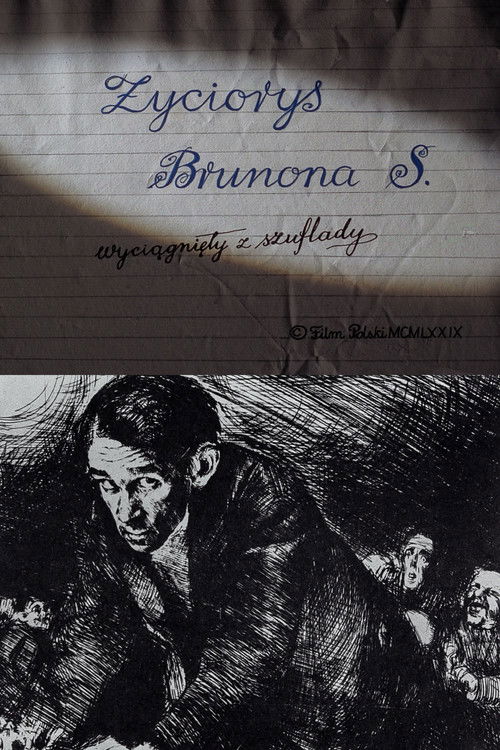 Życiorys
Brunona S.
wyciągnięty z szuflady
© Film Polski MCMLXXIX